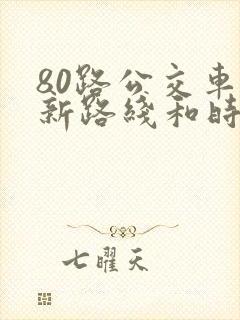 80路公交車
新路綫和時
七曜天